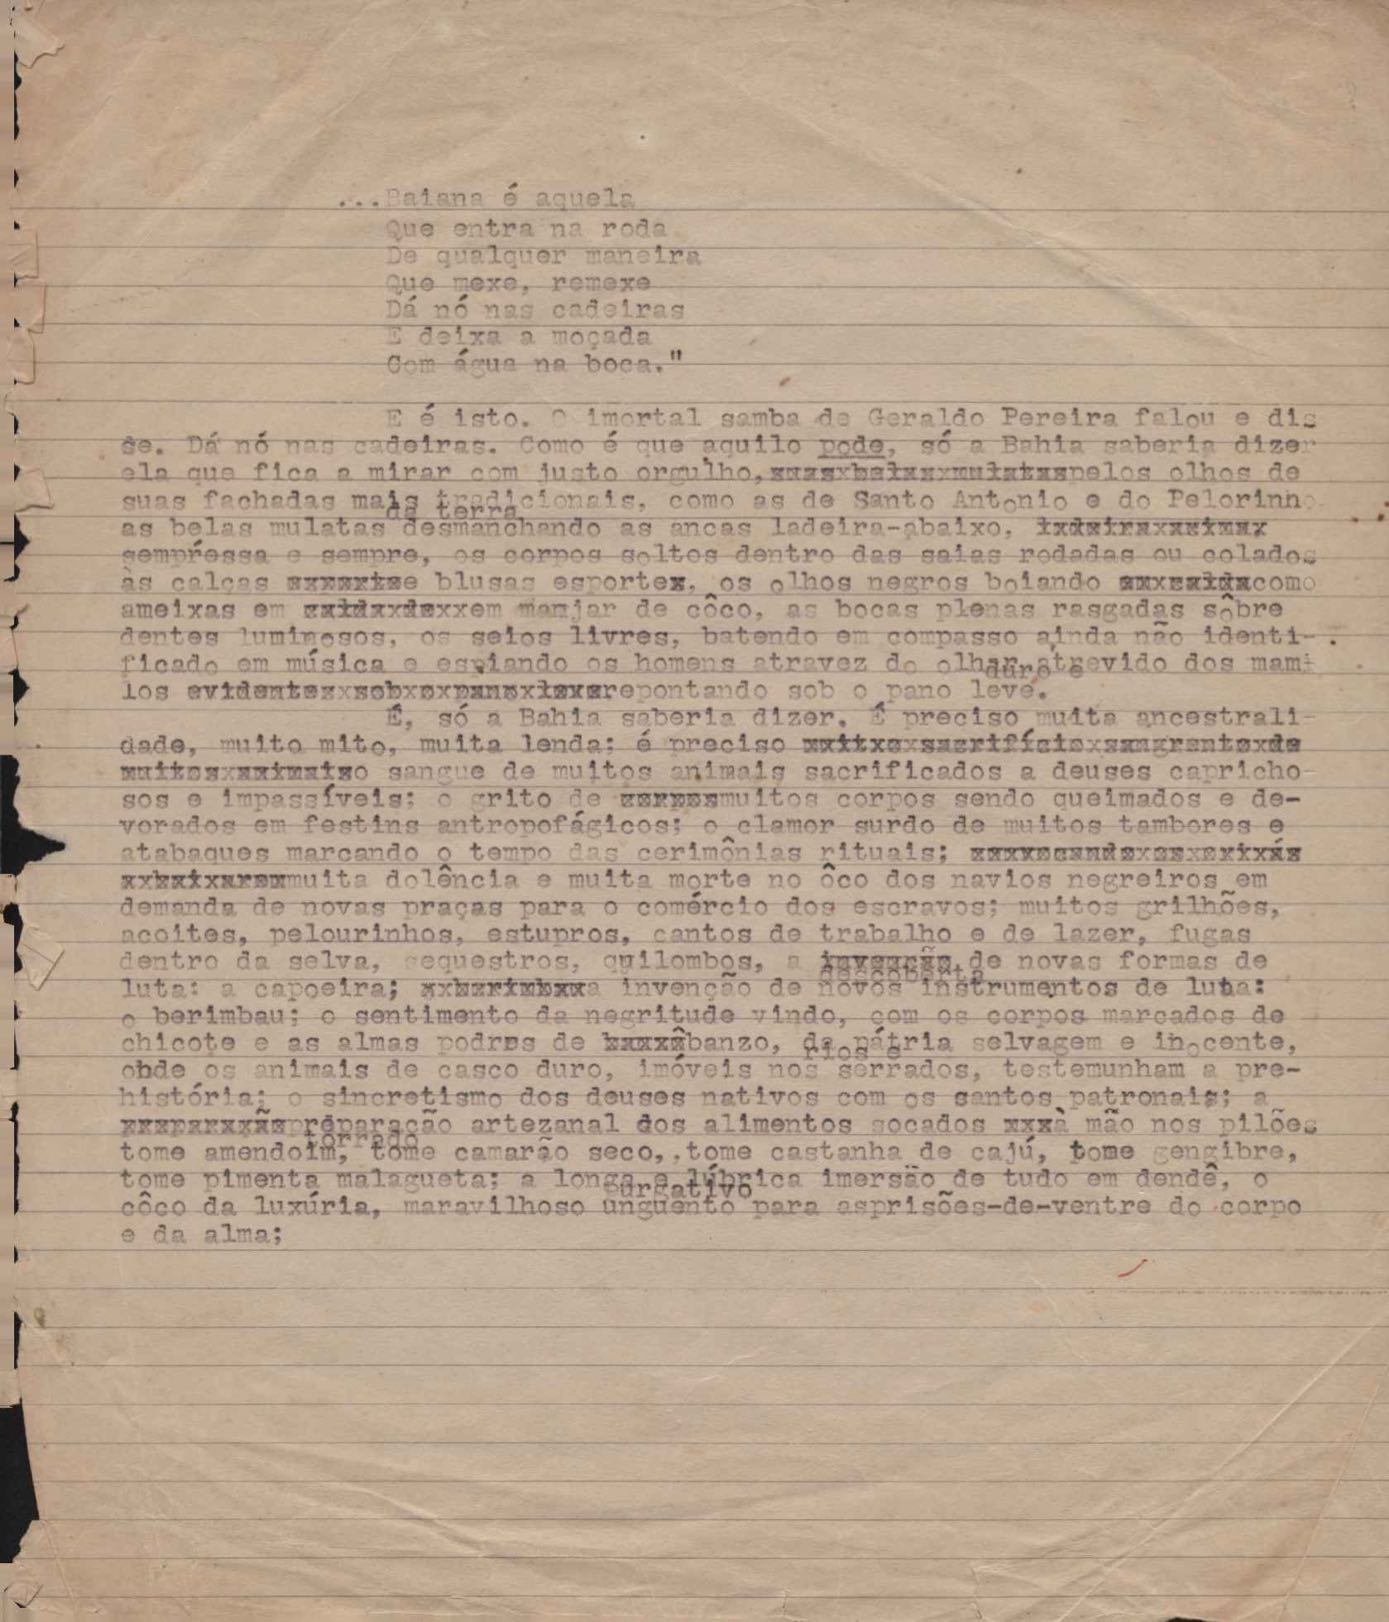 ...Baiana é aquela
Que entra na roda
De qualquer maneira
Que mexe, remexe
Dá nó nas cadeiras
E deixa a moçada
Com água na boca."
E é isto. O imortal samba de Geraldo Pereira falou e dis
se. Dá nó nas cadeiras. Como é que aquilo pode, só a Bahia saberia dizer
ela que fica a mirar com justo orgulho, pelos olhos de
suas fachadas mais tradicionais, como as de Santo Antonio e do Pelorinho
da terra
as belas mulatas desmanchando as ancas ladeira-abaixo,
sempressa e sempre, os corpos soltos dentro das saias rodadas ou colados
às calças e blusas esporte, os olhos negros boiando como
ameixas em em manjar de côco, as bocas plenas rasgadas sôbre
dentes luminosos, os seios livres, batendo em compasso ainda não identi-
ficado em música e espiando os homens atravez do olhar atrevido dos mami
duro e
los evidentes sob o pano leve repontando sob o pano leve.
É, só a Bahia saberia dizer. É preciso muita ancestrali-
dade, muito mito, muita lenda; é preciso sacrifício sangrento de
muitos animais o sangue de muitos animais sacrificados a deuses capricho-
sos e impassíveis; o grito de corpos muitos corpos sendo queimados e de-
vorados em festins antropofágicos; o clamor surdo de muitos tambores e
atabaques marcando o tempo das cerimônias rituais;
muita dolência e muita morte no ôco dos navios negreiros em
demanda de novas praças para o comércio dos escravos; muitos grilhões,
acoites, pelourinhos, estupros, cantos de trabalho e de lazer, fugas
dentro da selva, sequestros, quilombos, a invenção de novas formas de
descoberta
luta: a capoeira; a invenção de novos instrumentos de luta:
o berimbau; o sentimento da negritude vindo, com os corpos marcados de
chicote e as almas podres de banzo, da pátria selvagem e inocente,
rios e
onde os animais de casco duro, imóveis nos serrados, testemunham a pre-
história; o sincretismo dos deuses nativos com os santos patronais; a
preparação artezanal dos alimentos socados à mão nos pilões
torrado
tome amendoim, tome camarão seco, tome castanha de cajú, tome gengibre,
tome pimenta malagueta; a longa e lúbrica imersão de tudo em dendê, o
purgativo
côco da luxúria, maravilhoso unguento para asprisões-de-ventre do corpo
e da alma;